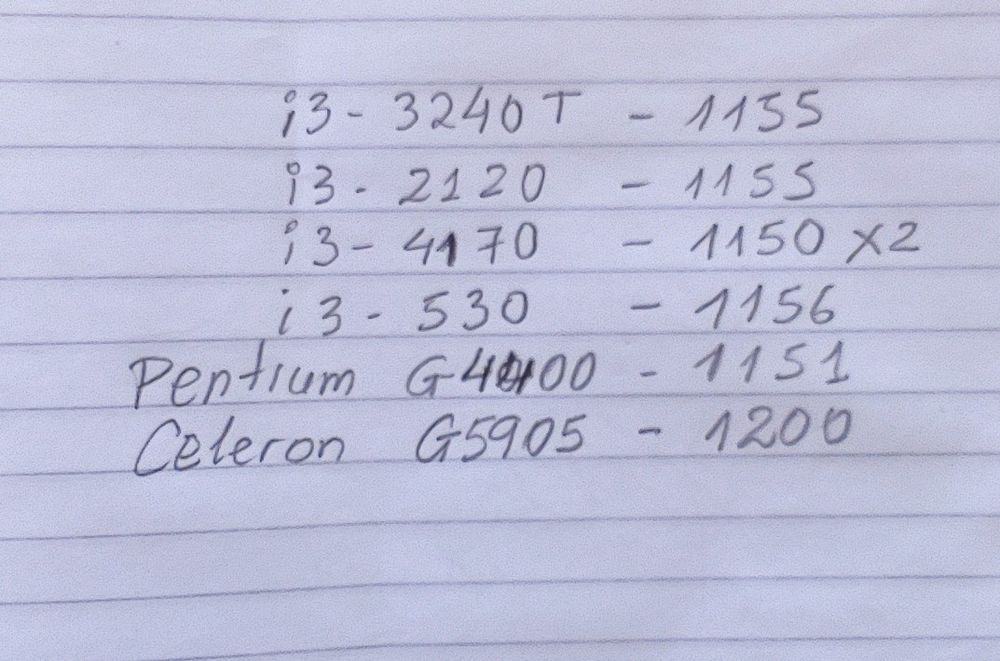 i3 - 3240T - 1155
i3 - 2120 - 1155
i3 - 4170 - 1150 x2
i3 - 530 - 1156
Pentium G4400 - 1151
Celeron G5905 - 1200